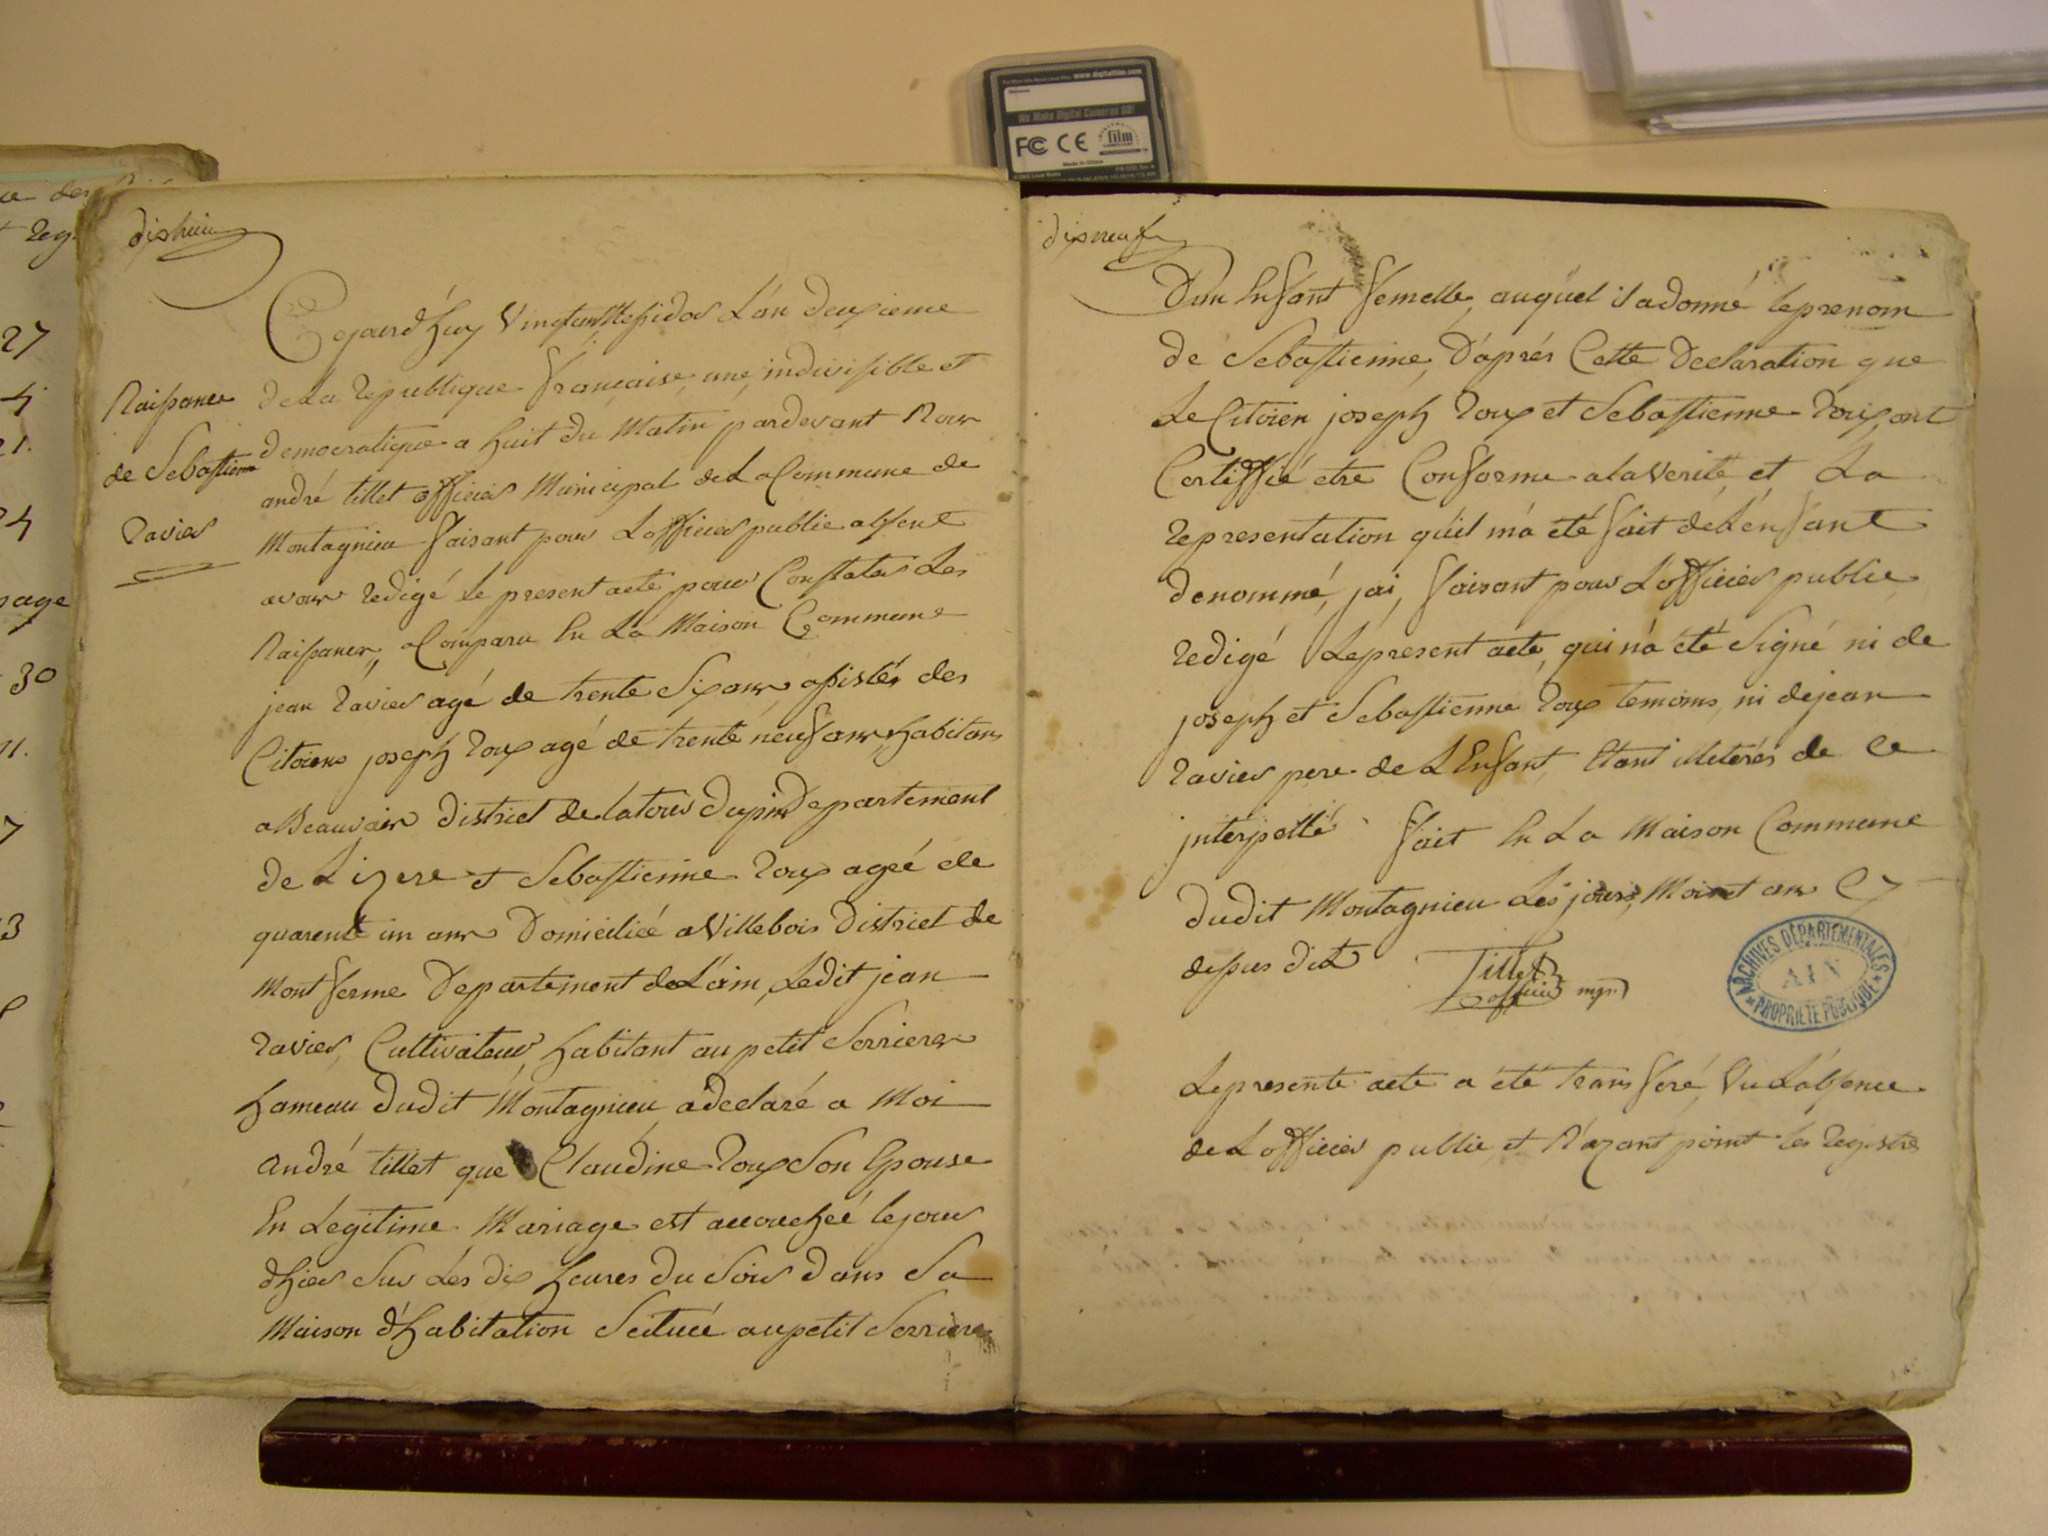 dixhui
Cejourd'huy vingtun Messidos L'an deuxieme
De La republique françaises, une, indivisible et
democratique a huit du Matin pardevant Nous
andré tillet officier Municipal de La Commune de
Montagnieu faisant pour Lofficier public absent
avons redigé Le present acte, pour Constater Les
Naissances, a Comparu En La Maison Commune
jean ravier agé de trente Six ans, assistés des
Citoiens joseph roux agé de trente neuf ans, habitans
a Beauvais District de latour Dupin Departement
de Lizere et Sebastienne roux ageé de
quarente un ans Domiciliée a Villebois District de
Mont ferme Departement de L'ain, Ledit jean
ravier, Cultivateur, habitant au petit Serrieres
hameau dudit Montagnieu, a declaré a Moi
andré tillet que Claudine roux Son Epouse
En Legitime Mariage est accouchée le jour
d'hier Sur Les dix heures du Soir dans Sa
Maison d'habitation Scituée au petit Serriere
Naissance
de Sebastienne
ravier
dixneuf
D'un Enfant femelle, auquel il a donné le prenom
de Sebastienne, D'aprés Cette Declaration que
Le Citoien joseph roux et Sebastienne roux, ont
Certiffié etre Conforme a la Verité, et La
representation qu'il m'a été fait de L'enfant
denommé, jai, faisant pour L'officier public
redigé Le present acte, qui n'a été Signé ni de
joseph et Sebastienne roux temoins, ni de jean
ravier pere de L'Enfant, Etant illeterés de ce
interpellé fait En La Maison Commune
dudit Montagnieu Les jours, Mois et an Cy
dessus dit
Tillet
officier mp.
ARCHIVES DÉPARTEMENTALES
AIN
PROPRIÉTÉ PUBLIQUE
Le presente acte a été transferé, Vu L'absence
de L'officier public, et N'ayant point les registre
www.digitalfilm.com
We Make Digital Cameras GO!
FC CE film
Made in China
27
21.
24
page
30